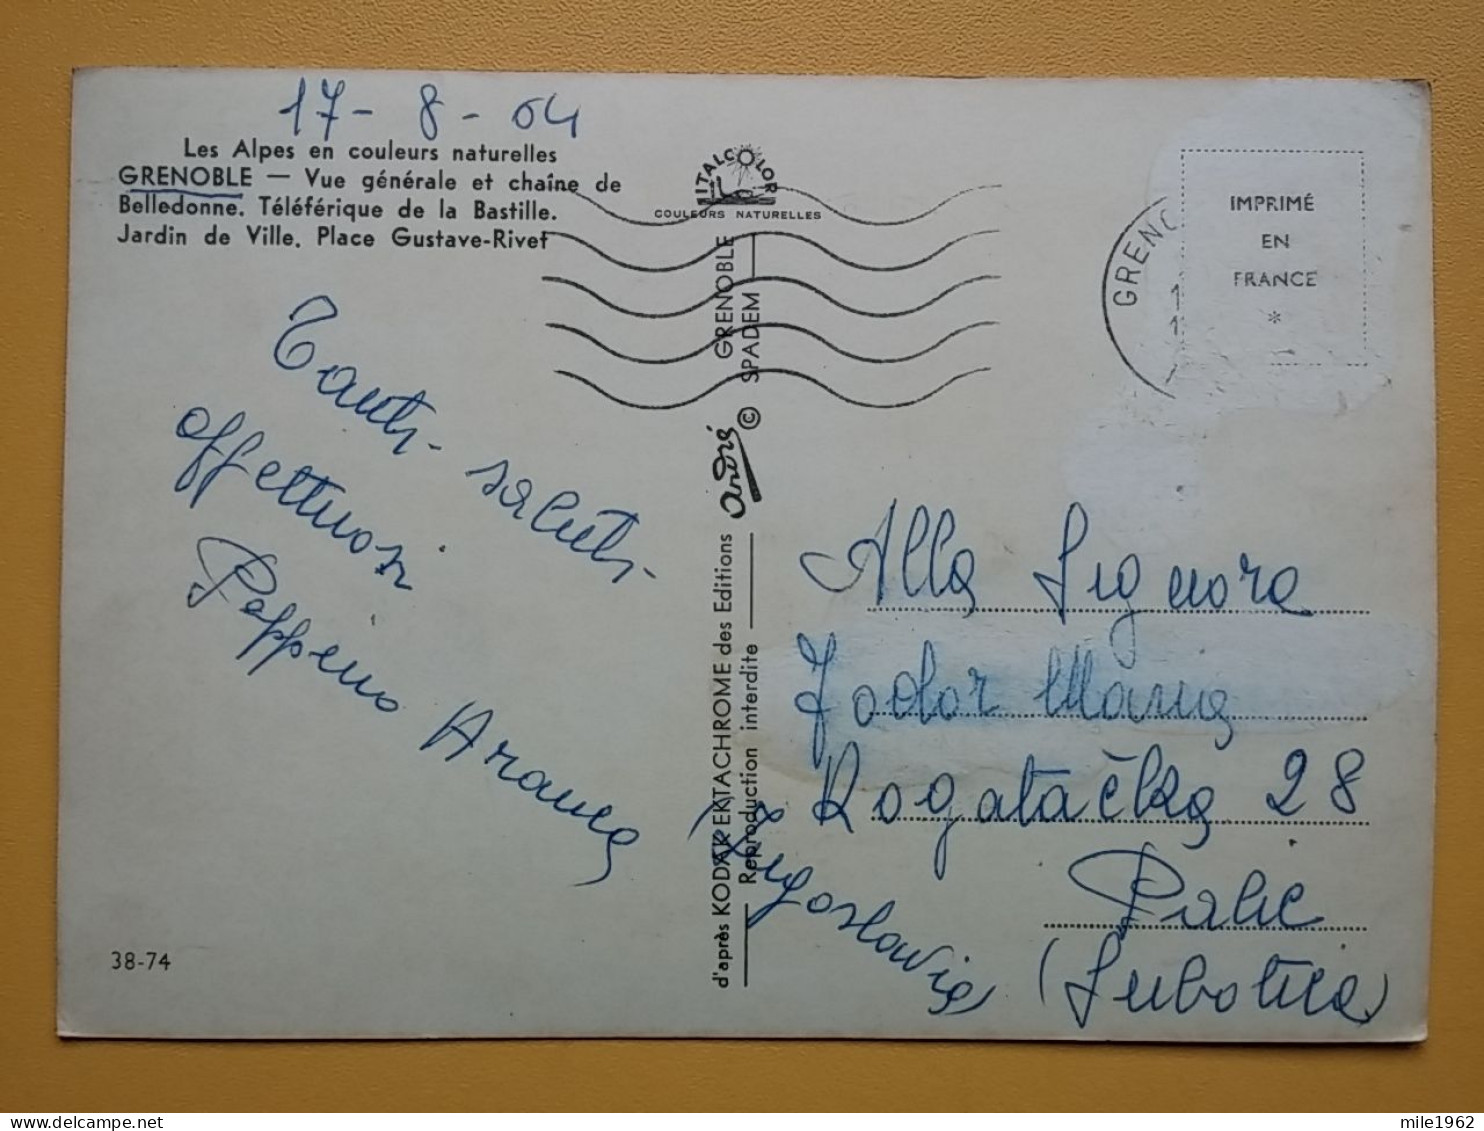 17-8-64
Les Alpes en couleurs naturelles
GRENOBLE — Vue générale et chaîne de
Belledonne. Téléférique de la Bastille.
Jardin de Ville. Place Gustave-Rivet
Tanti saluti
affettuosi
Peppino
38-74
ITALCOLOR
COULEURS NATURELLES
d'après KODAK EKTACHROME des Editions andré GRENOBLE
Reproduction interdite © SPADEM
GRENO
IMPRIMÉ
EN
FRANCE
*
Alla Signora
Fodor Maria
Rogatačka 28
Palic
(Subotica)
(Jugoslavia)
mile1962